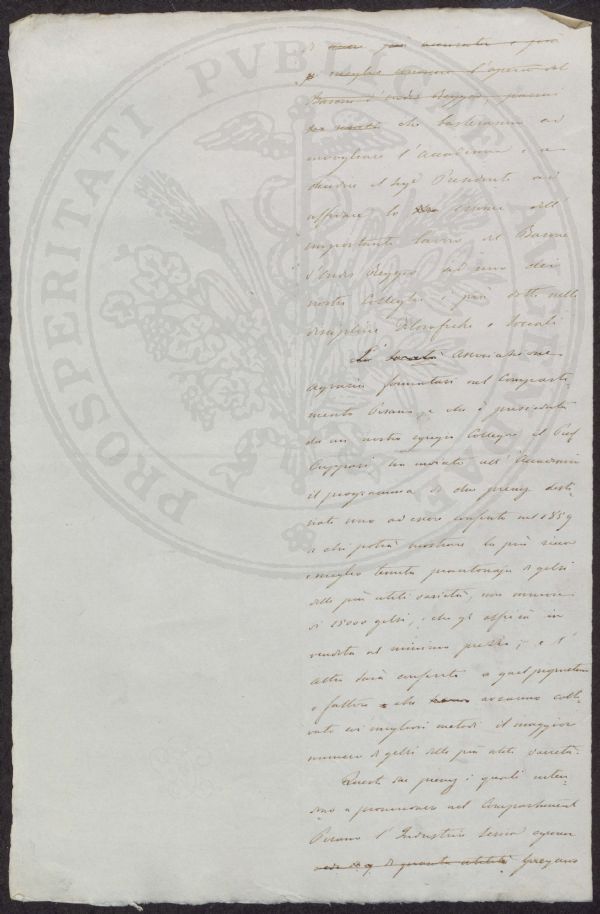 PROSPERITATI PVBLICAE AVGENDAE
meglio l'opera del
Barone d'Ondes Reggio,
che basteranno ad
invogliare l'Accademia e a
Presidente ad
affidare lo esame dell'
importante lavoro del Barone
d'Ondes Reggio ad uno dei
nostri Colleghi i più dotti nelle
discipline filosofiche e sociali
La Associazione
agraria formatasi nel Comparti
mento Pisano, e che è presieduta
da un nostro egregio Collega il Prof
Cuppari ha inviato all'Accademia
il programma di due premj desti-
nati uno ad essere conferito nel 1859
a chi potrà mostrare la più ricca
e meglio tenuta piantonaja di gelsi
delle più utili varietà, non minore
di 15000 gelsi, che gli offrirà in
vendita al minimo prezzo; e l'
altro sarà conferito a quel proprietario
o fattore che avranno colti-
vato coi migliori metodi il maggior
numero di gelsi delle più utili varietà.
Questi due premj i quali inten-
dono a promuovere nel Compartimento
Pisano l'Industria Serica
di quanta utilità